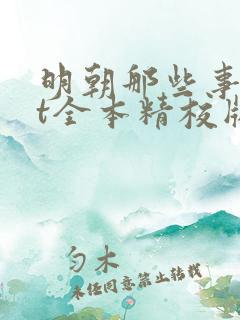 明朝那些事
t全本精校版
勺木
未经同意禁止转载